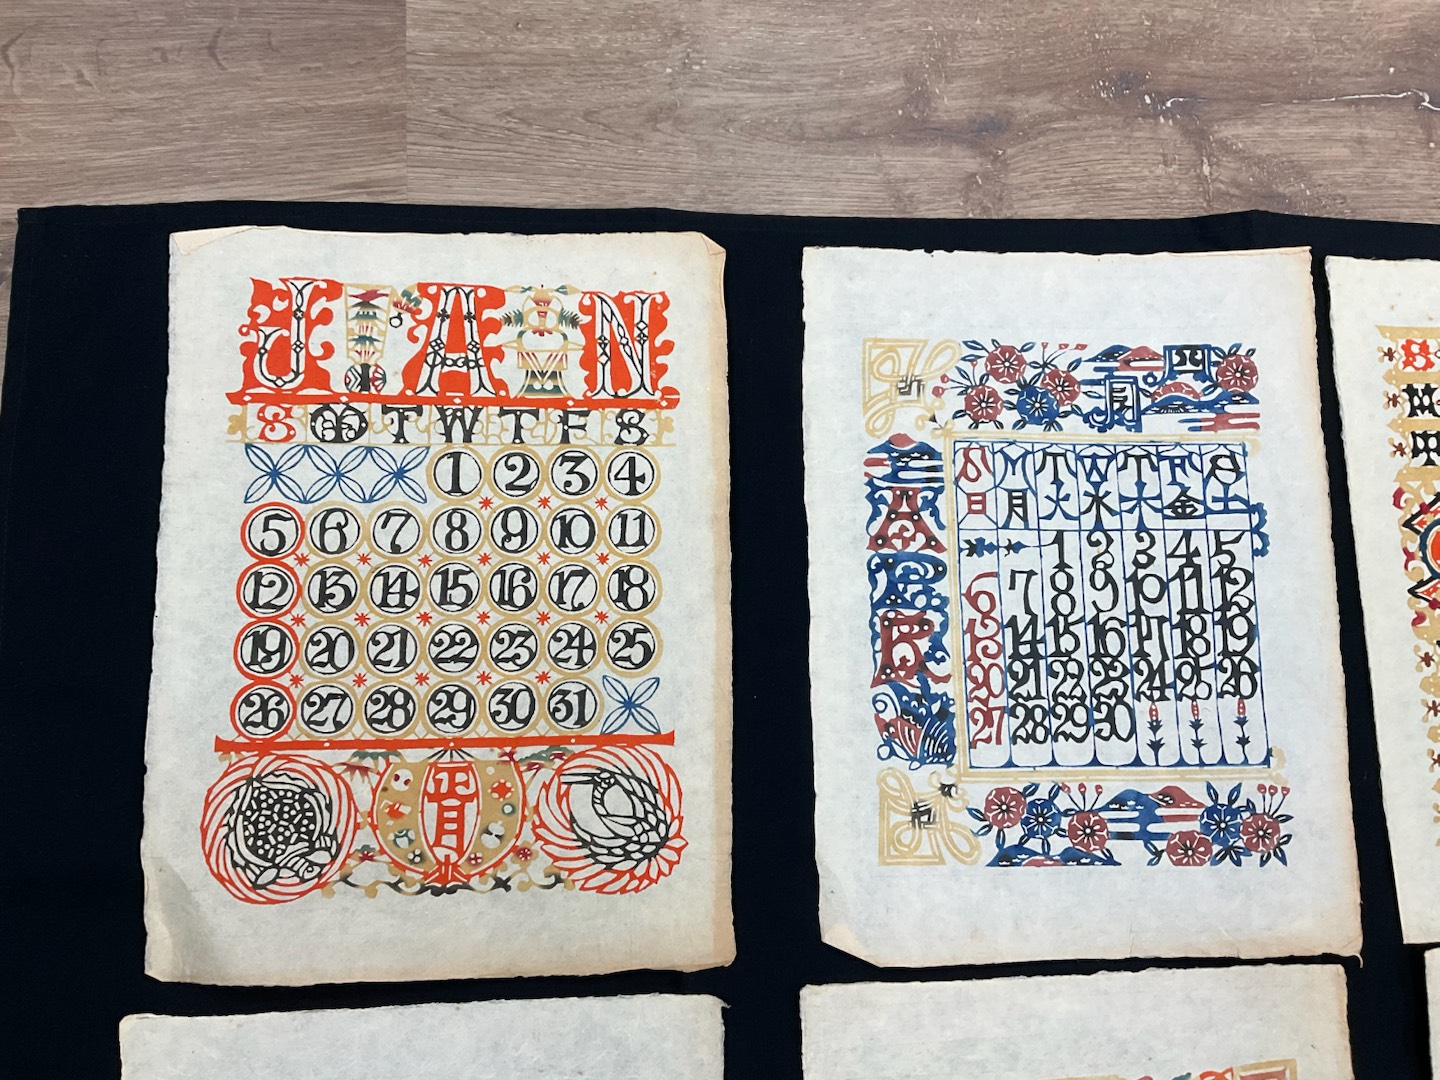 JAN
S M T W T F S
1 2 3 4
5 6 7 8 9 10 11
12 13 14 15 16 17 18
19 20 21 22 23 24 25
26 27 28 29 30 31
正月
四月
APR
S M T W T F S
日 月 火 水 木 金 土
1 2 3 4 5
6 7 8 9 10 11 12
13 14 15 16 17 18 19
20 21 22 23 24 25 26
27 28 29 30